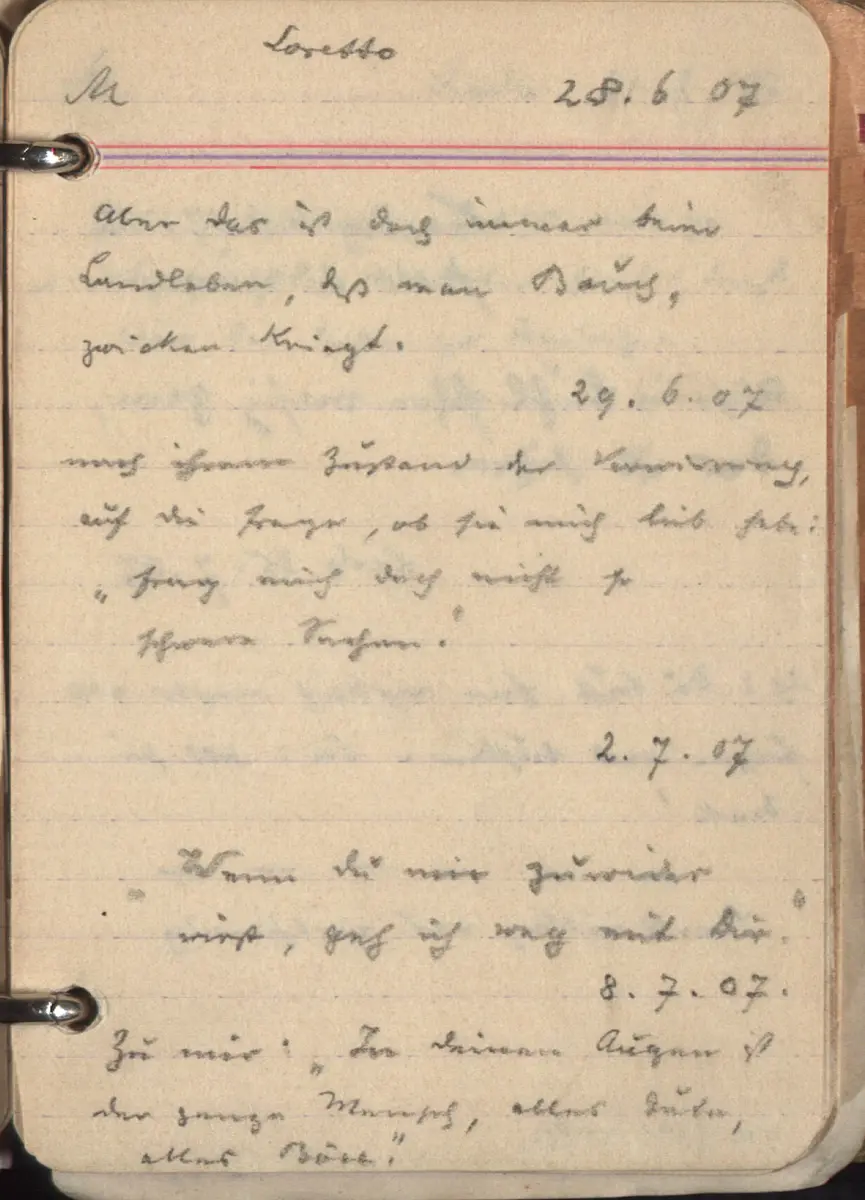 Loretto
M 28. 6 07
Aber das ist doch immer beim
Landleben, daß man Bauch,
zwicken kriegt.
29. 6. 07
nach ihrem Zustand der Verwirrung,
auf die Frage, ob sie mich lieb habe:
„Frag mich doch nicht so
schwere Sachen."
2. 7. 07
"Wenn du mir zuwider
wirst, geh ich weg mit Dir."
8. 7. 07.
Zu mir: „In deinen Augen ist
der ganze Mensch, alles Gute,
alles Böse."